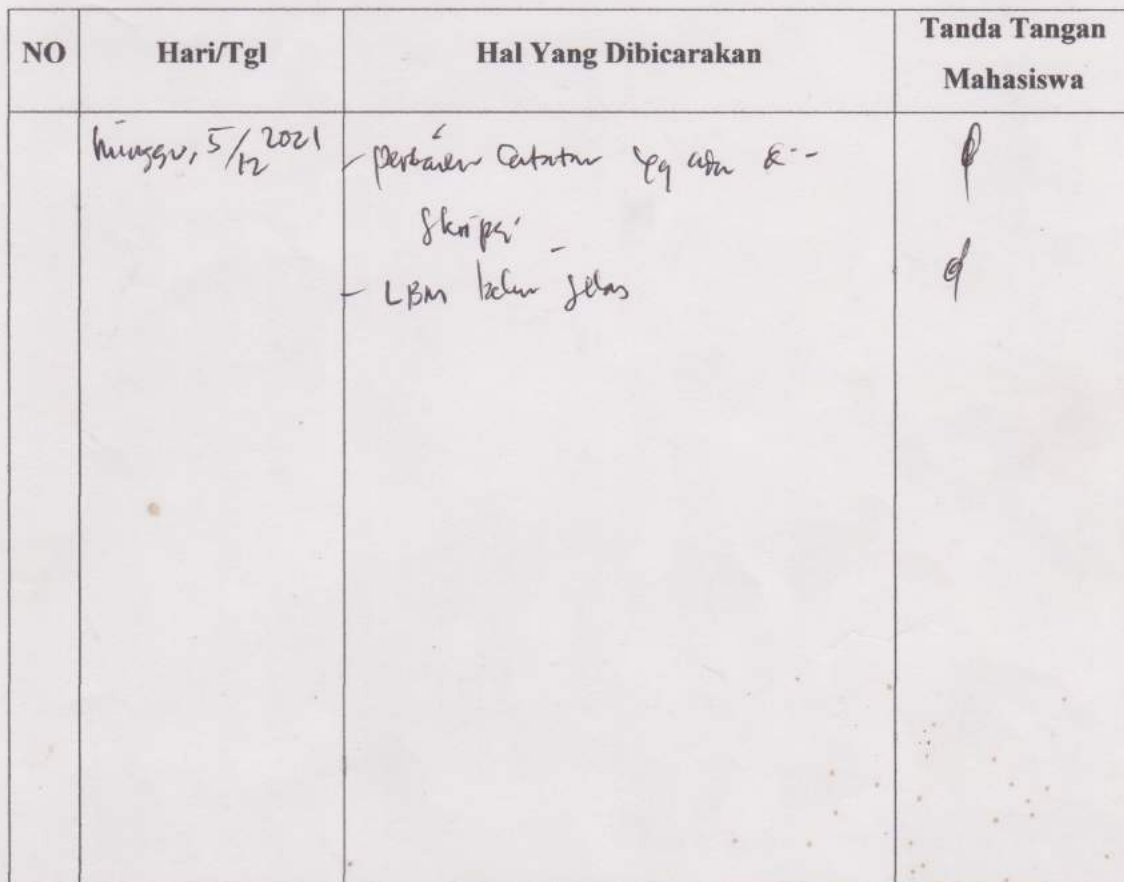 NO Hari/Tgl Hal Yang Dibicarakan Tanda Tangan Mahasiswa
Minggu, 5/12 2021
- perbaiki Catatan yg ada di
Skripsi
- LBM belum jelas